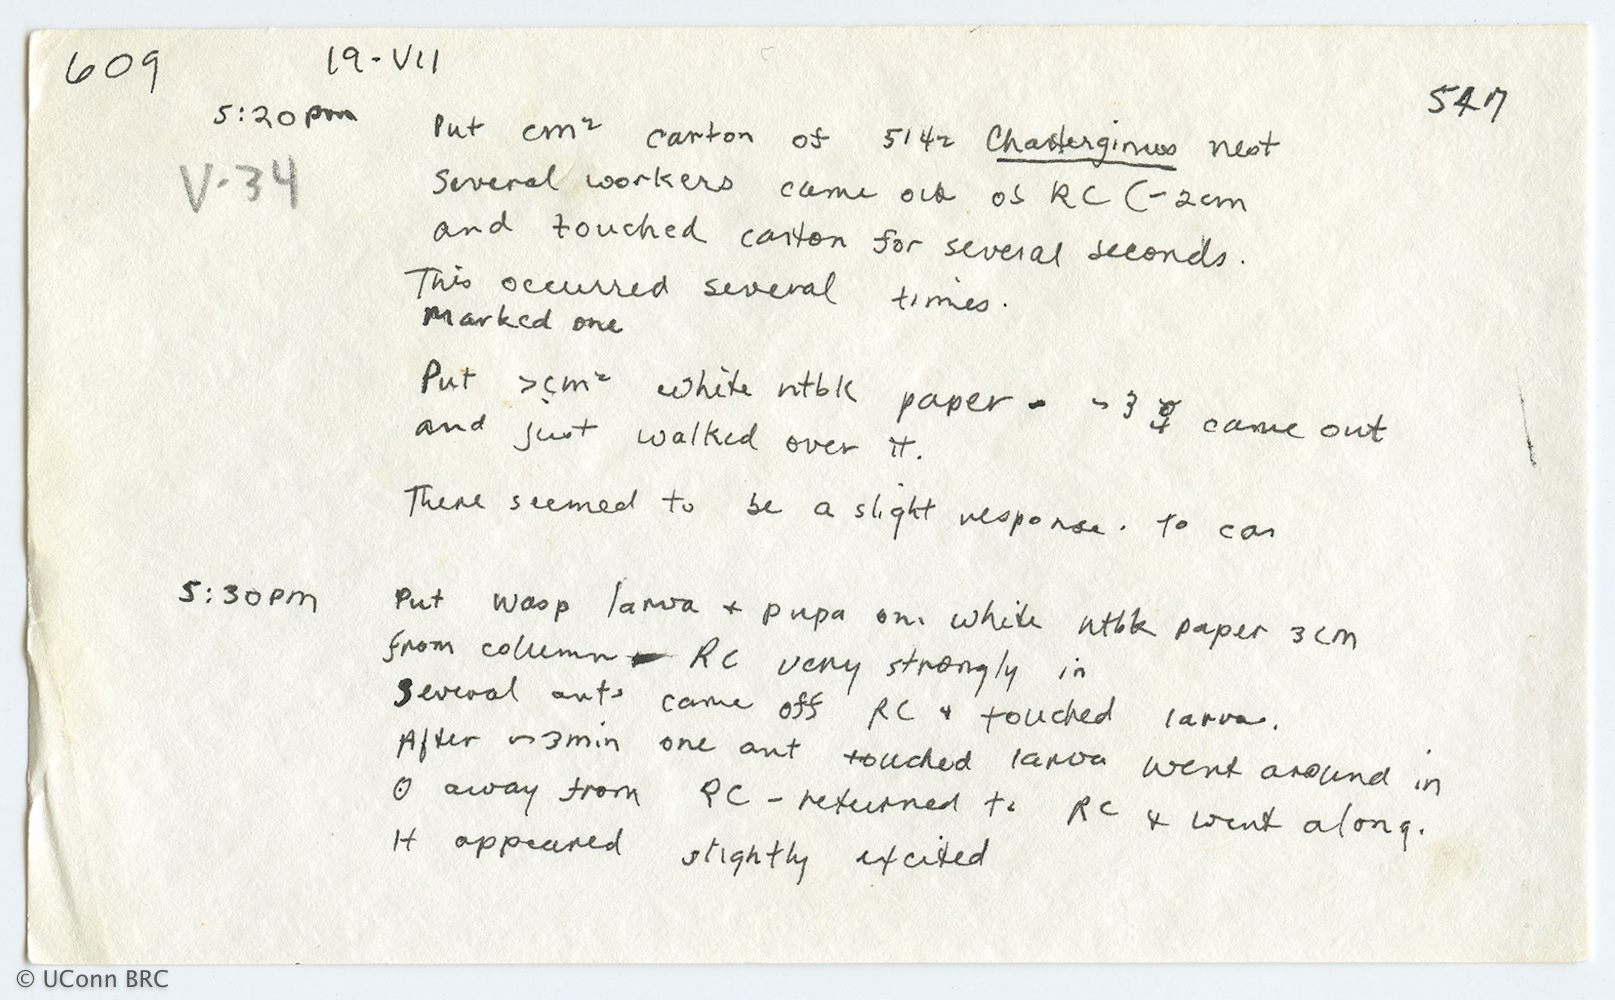 609 19-VII
547
5:20pm Put cm² carton of 5142 Chartergins nest
V-34 Several workers came out of RC (~2cm
and touched carton for several seconds.
This occurred several times.
Marked one
Put >cm² white ntbk paper - ~3 ☿ came out
and just walked over it.
There seemed to be a slight response. to car
5:30pm Put wasp larva + pupa on. white ntbk paper 3cm
from column - RC very strongly in
Several ants came off RC + touched larva.
After ~3min one ant touched larva went around in
O away from RC - returned to RC & went along.
It appeared slightly excited
© UConn BRC